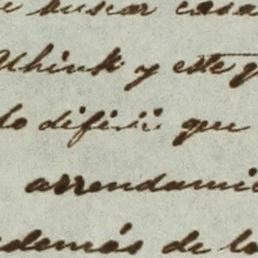 e buscar casa
Whink y este q
lo difisil que
arrendami
además de lo